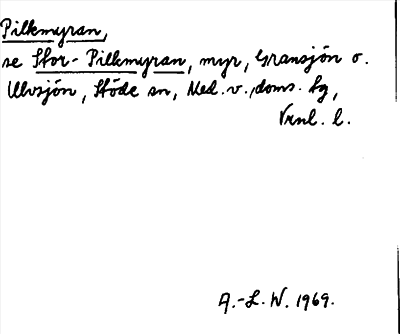 Pilkmyran,
se Stor-Pilkmyran, myr, Gransjön o.
Ulvsjön, Stöde sn, Med. v. doms. tg,
Vrnl. l.
A.-L. W. 1969.